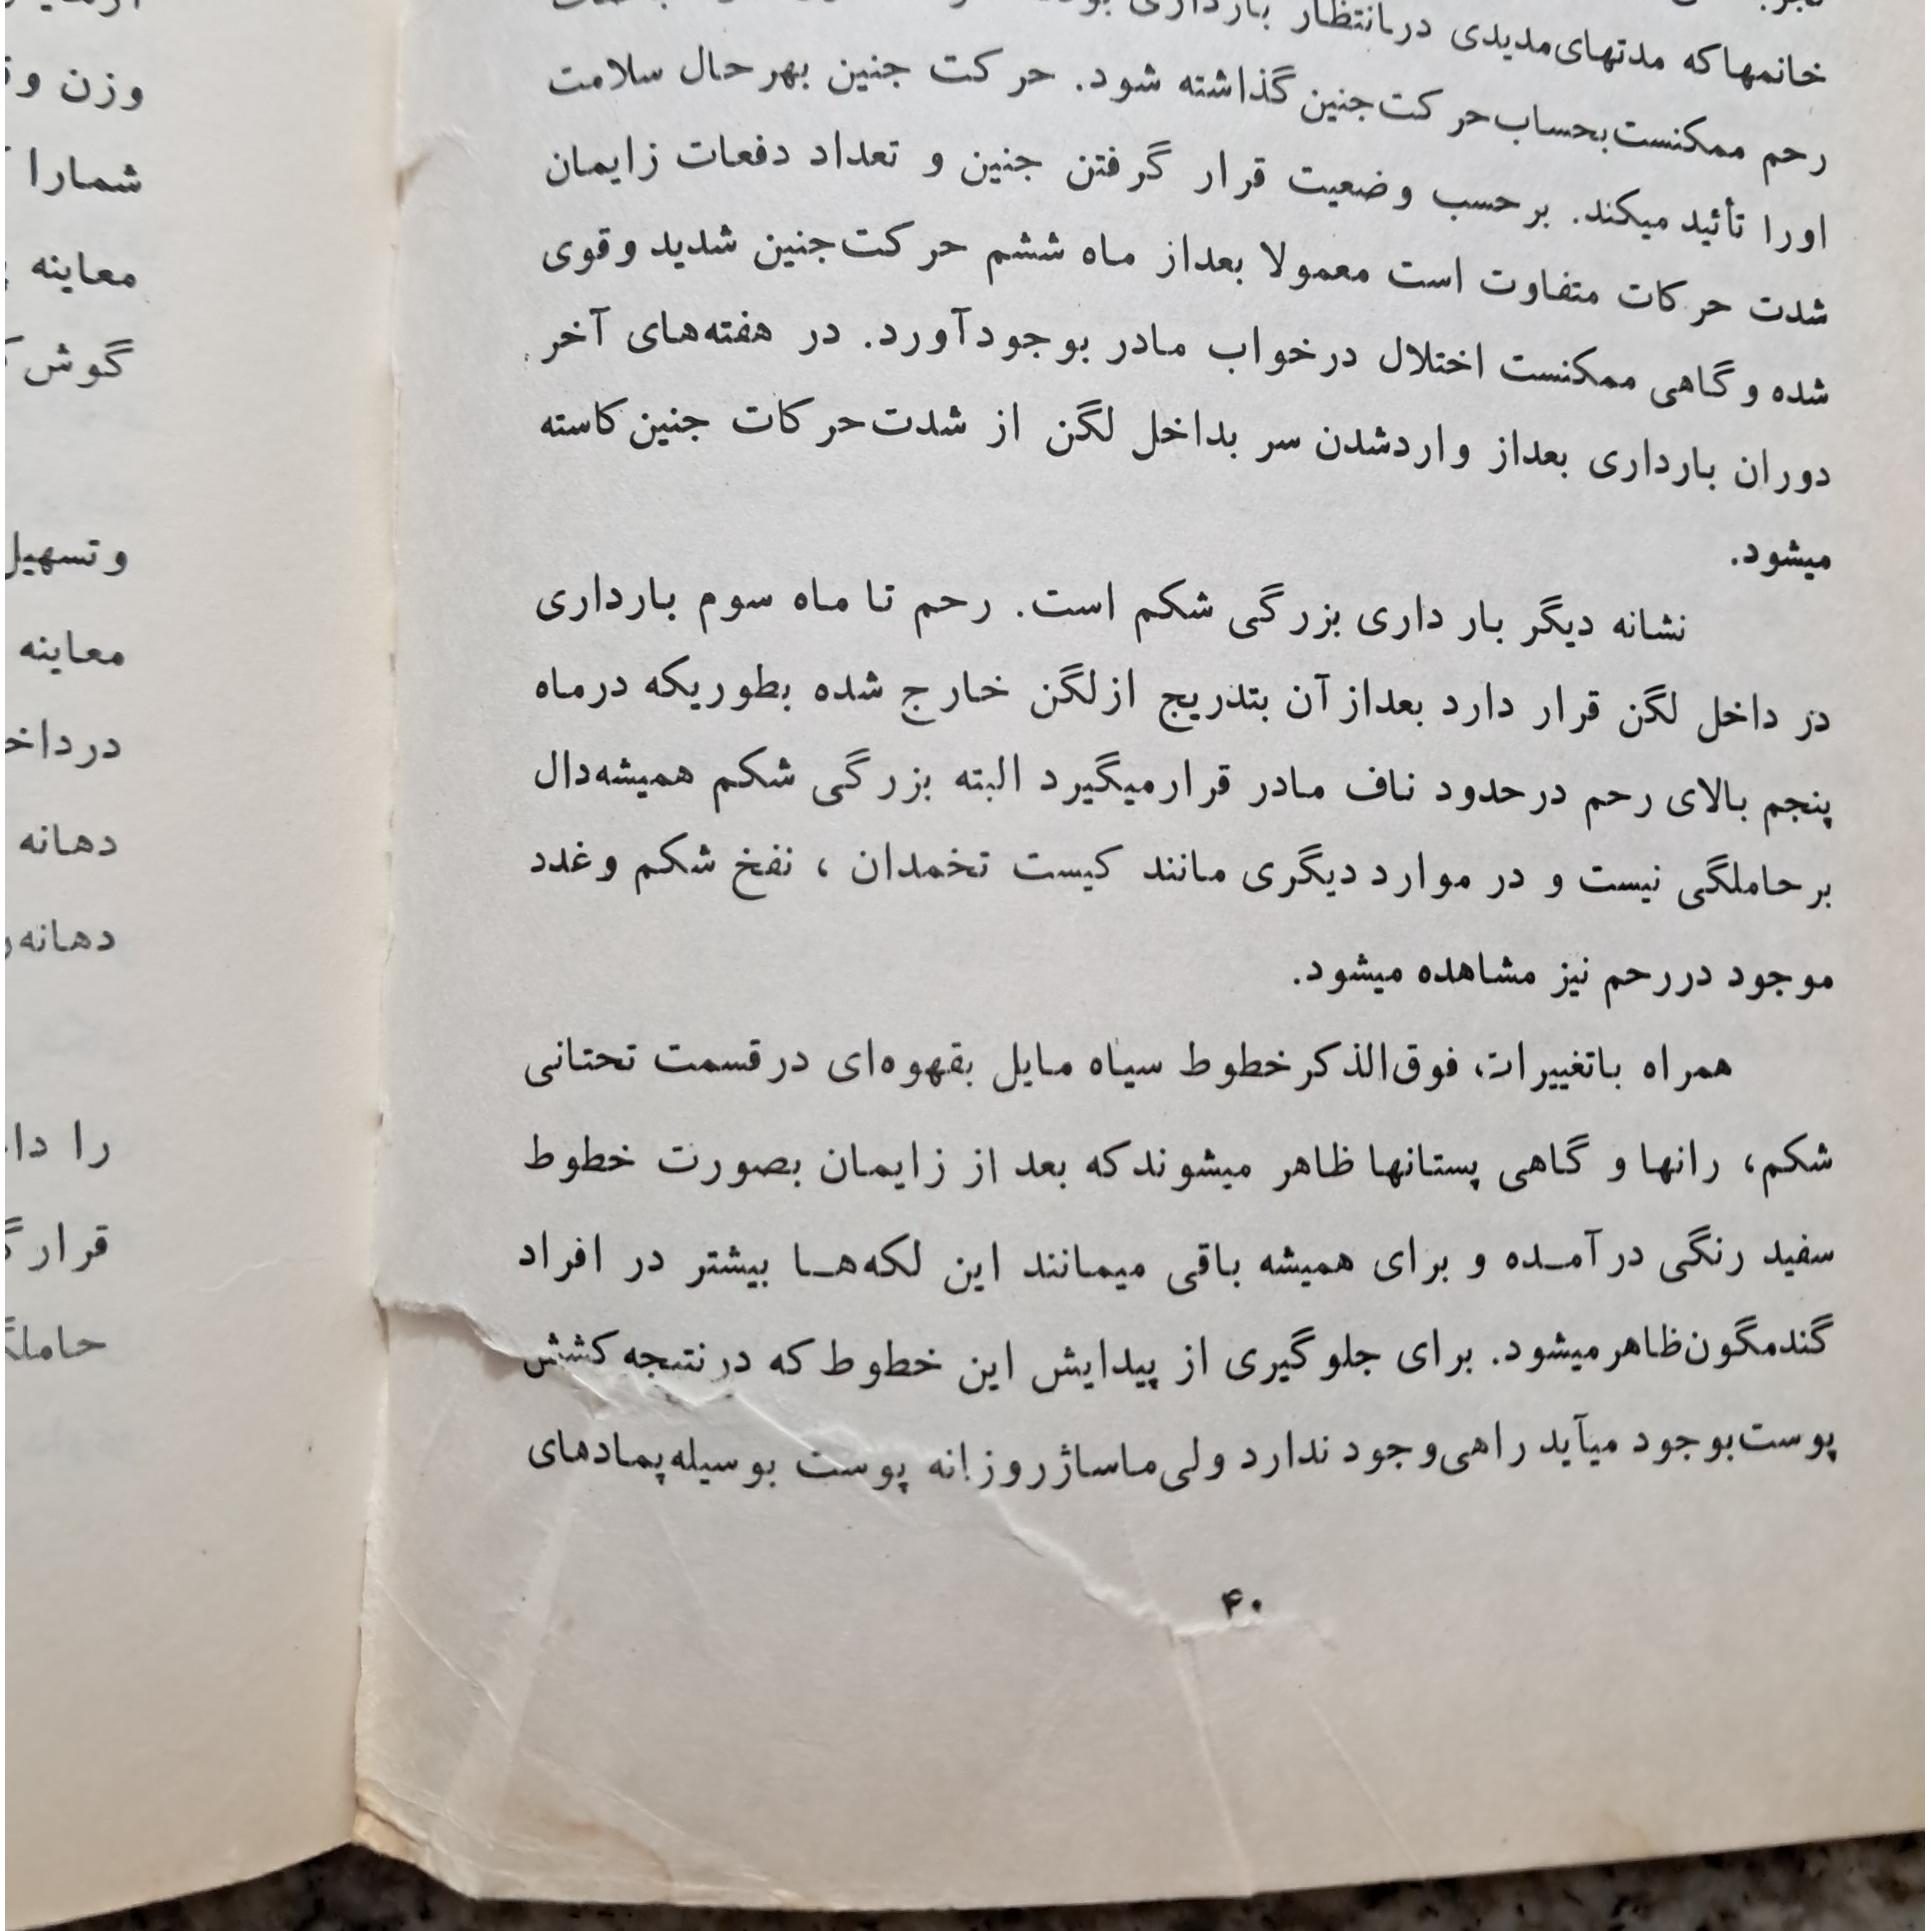 خانمها که مدتهای مدیدی در انتظار بارداری
رحم ممکنست بحساب حرکت جنین گذاشته شود. حرکت جنین بهر حال سلامت
اورا تأئید میکند. برحسب وضعیت قرار گرفتن جنین و تعداد دفعات زایمان
شدت حرکات متفاوت است معمولا بعداز ماه ششم حرکت جنین شدید وقوی
شده و گاهی ممکنست اختلال درخواب مادر بوجود آورد. در هفته‌های آخر
دوران بارداری بعداز واردشدن سر بداخل لگن از شدت حرکات جنین کاسته
میشود.
نشانه دیگر بار داری بزرگی شکم است. رحم تا ماه سوم بارداری
در داخل لگن قرار دارد بعداز آن بتدریج ازلگن خارج شده بطوریکه درماه
پنجم بالای رحم درحدود ناف مادر قرارمیگیرد البته بزرگی شکم همیشه دال
برحاملگی نیست و در موارد دیگری مانند کیست تخمدان ، نفخ شکم وغدد
موجود دررحم نیز مشاهده میشود.
همراه باتغییرات، فوق‌الذکر خطوط سیاه مایل بقهوه‌ای درقسمت تحتانی
شکم، رانها و گاهی پستانها ظاهر میشوند که بعد از زایمان بصورت خطوط
سفید رنگی درآمـده و برای همیشه باقی میمانند این لکه‌هـا بیشتر در افراد
گندمگون ظاهرمیشود. برای جلوگیری از پیدایش این خطوط که درنتیجه کشش
پوست بوجود میآید راهی وجود ندارد ولی ماساژ روزانه پوست بوسیله پمادهای
۴۰
وزن
شمارا
معاینه
گوش
وتسهیل
معاینه
دهانه
دهانه
را
قرار